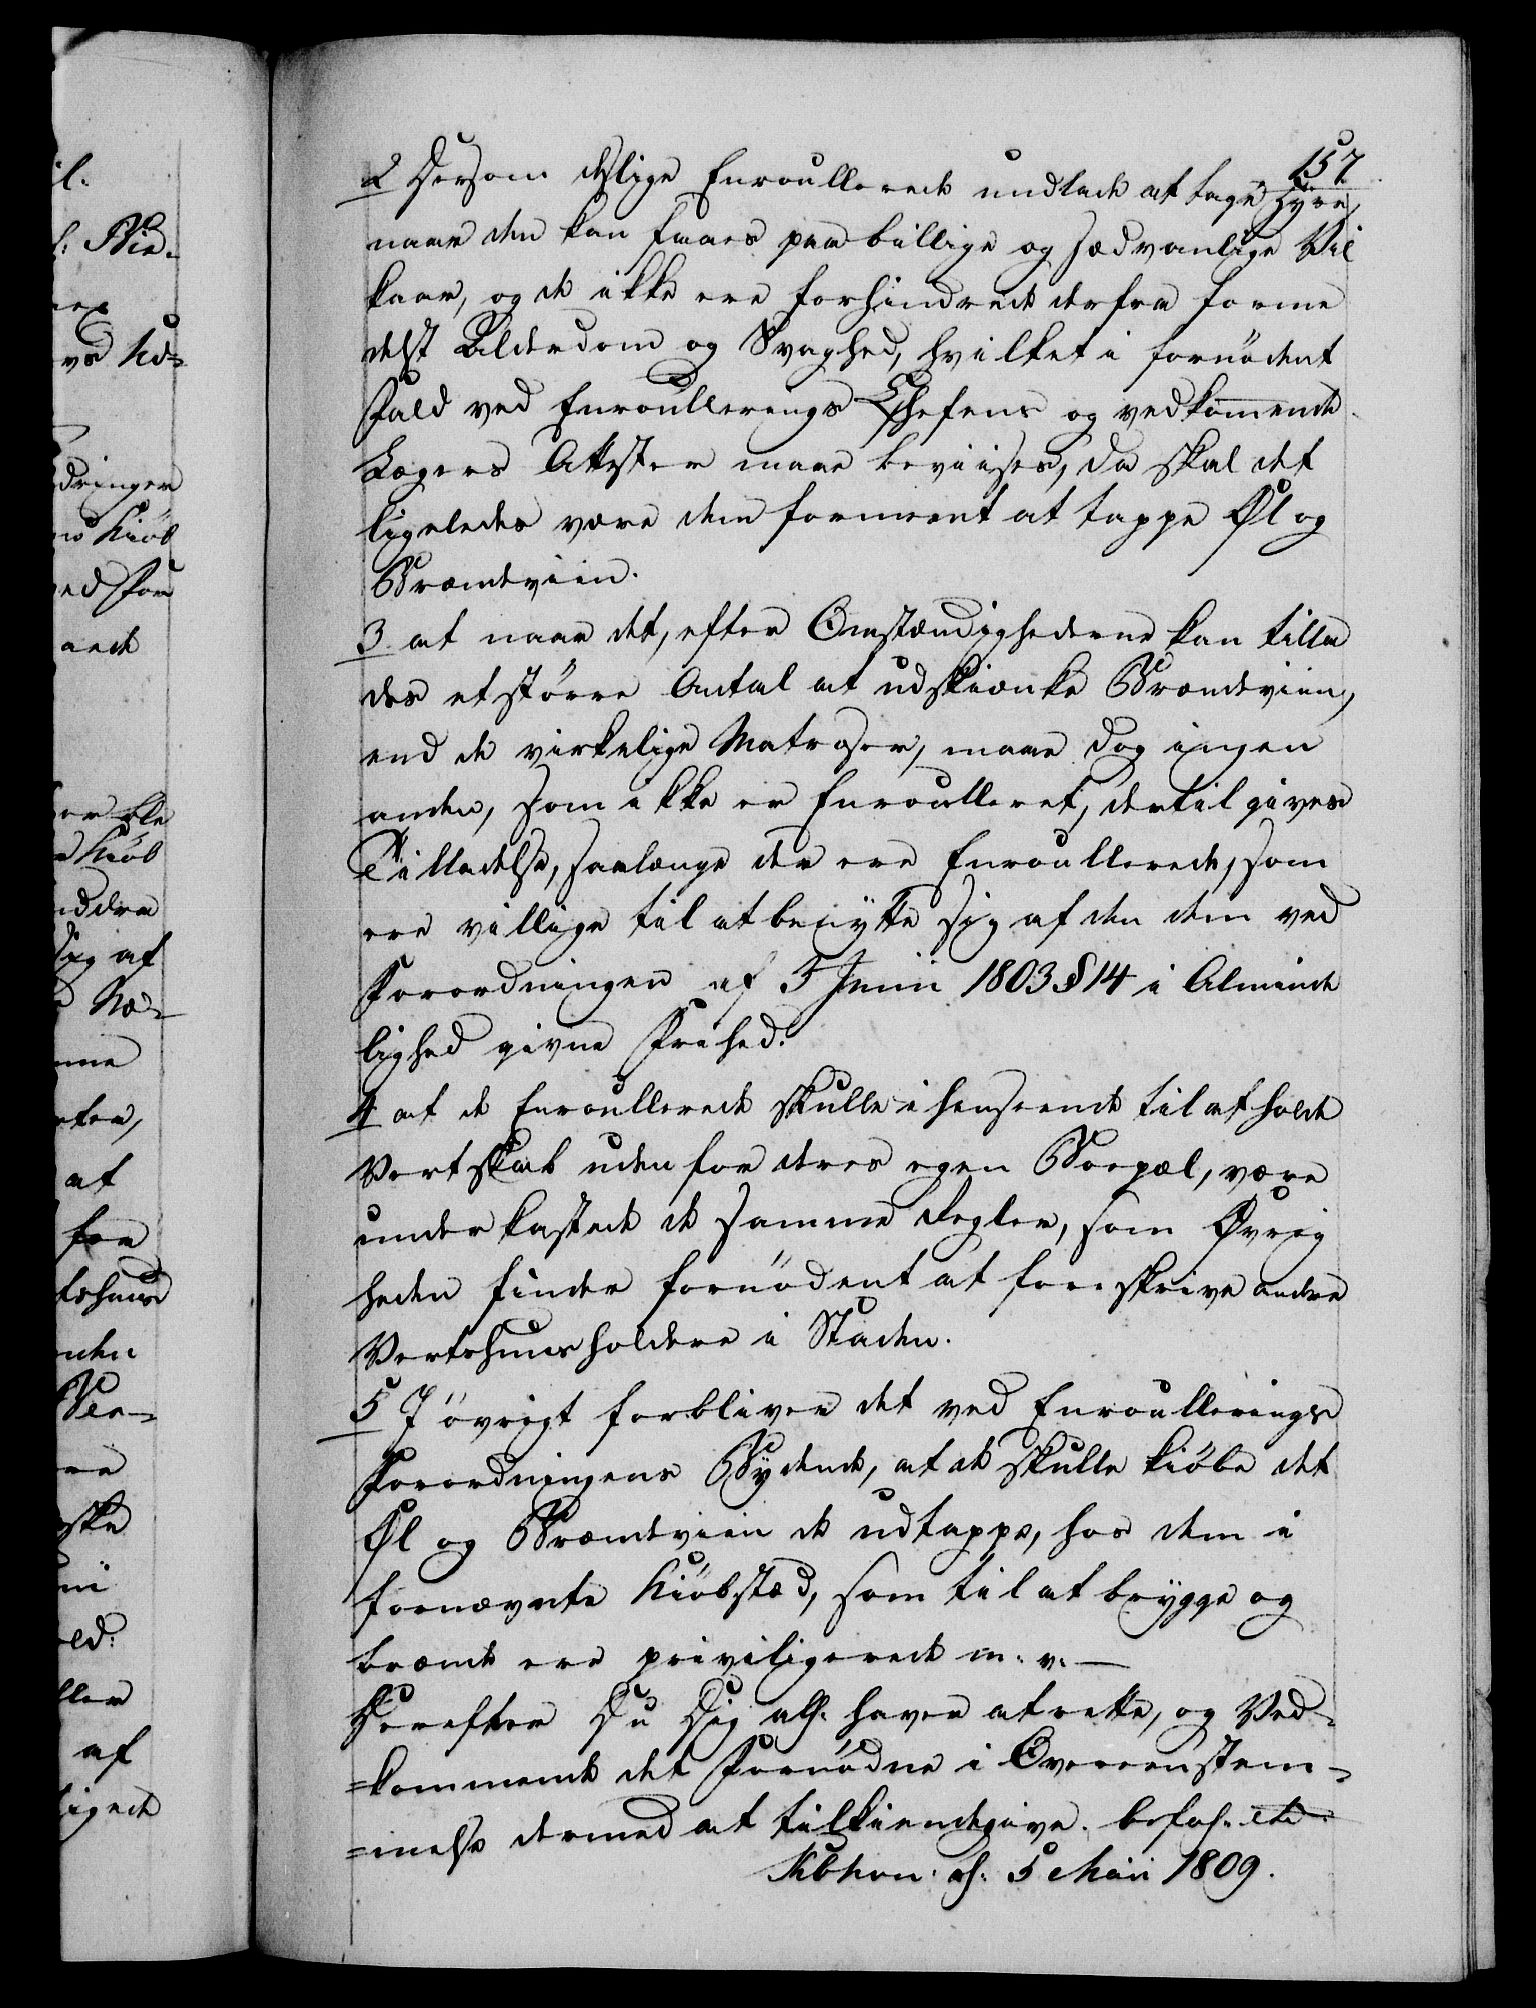 157
2 Dersom deslige Enroullerede undlade at tage Hyre,
naar den kan faaes paa billige og sædvanlige Vil
kaar, og de ikke ere forhindrede derfra forme
delst Alderdom og Svaghed, hvilket i fornødent
Fald ved Enroullerings Chefens og vedkommende
Lægers Attester maae beviises, da skal det
ligeledes være dem formeent at tappe Øl og
Brændeviin.
3 at naar det, efter Omstændighederne kan tilla
des et større Antal at udskiænke Brændeviin,
end de virkelige Matroser, maae dog ingen
anden, som ikke er Enroulleret, dertil gives
Tilladelse, saalænge der ere Enroullerede, som
ere villige til at benytte sig af den dem ved
Forordningen af 5 Junii 1803 § 14 i Alminde
lighed givne Frihed.
4 at de Enroullerede skulle i henseende til at holde
Vertskab uden for deres egen Boepæl, være
underkastede de samme Regler, som Øvrig
heden finder fornødent at foreskrive andre
Vertshuusholdere i Staden.
5 I øvrigt forbliver det ved Enroullerings
Forordningens Bydende, at de skulle kiøbe det
Øl og Brændeviin de udtappe, hos dem i
fornævnte Kiøbstæd, som til at brygge og
brænde ere priviligerede m. v. —
Derefter Du Dig allh. haver at rette, og Ved-
=kommende det Fornødne i Overeenstem-
=melse dermed at tilkiendegive. befal. etc.
Kbhvn: d. 5 Maii 1809.